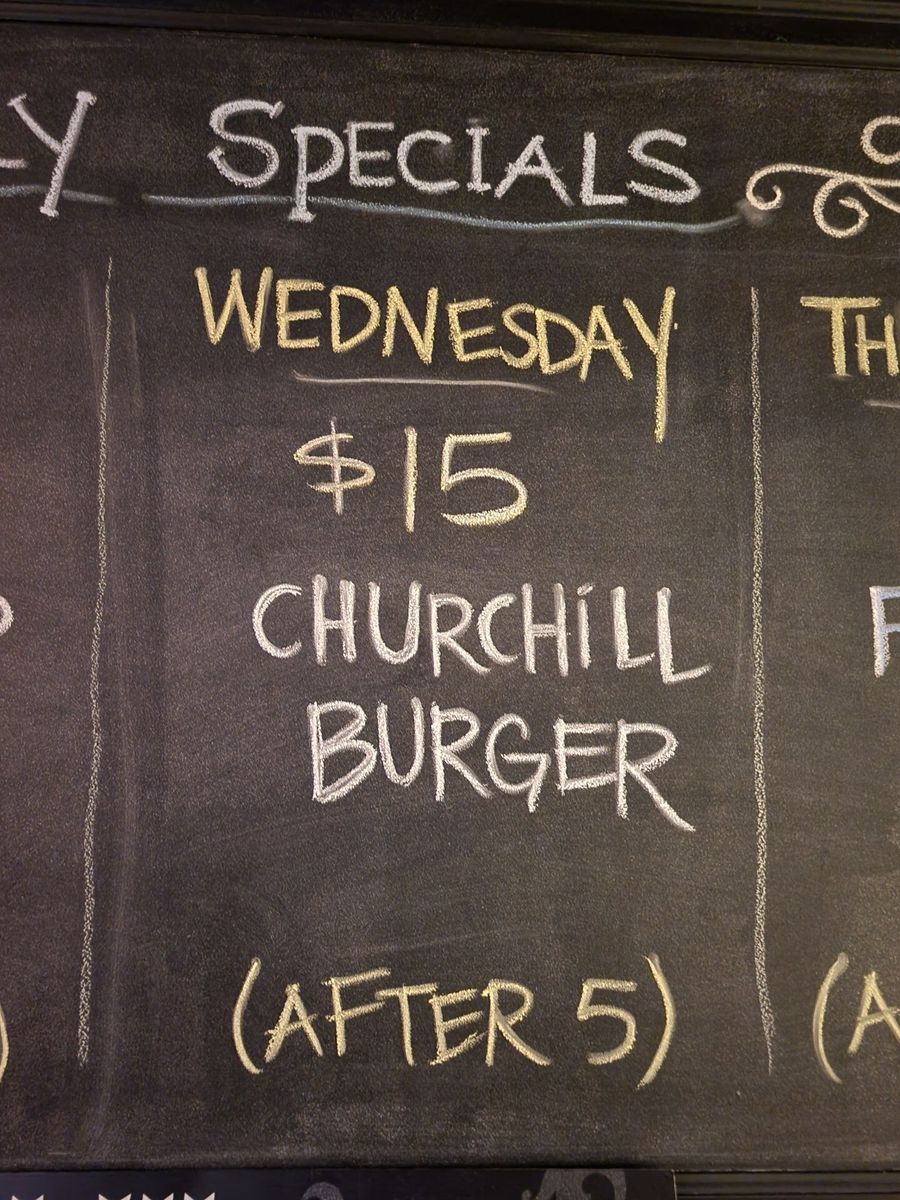 LY SPECIALS
WEDNESDAY
$15
CHURCHiLL
BURGER
(AFTER 5)
TH
F
(A